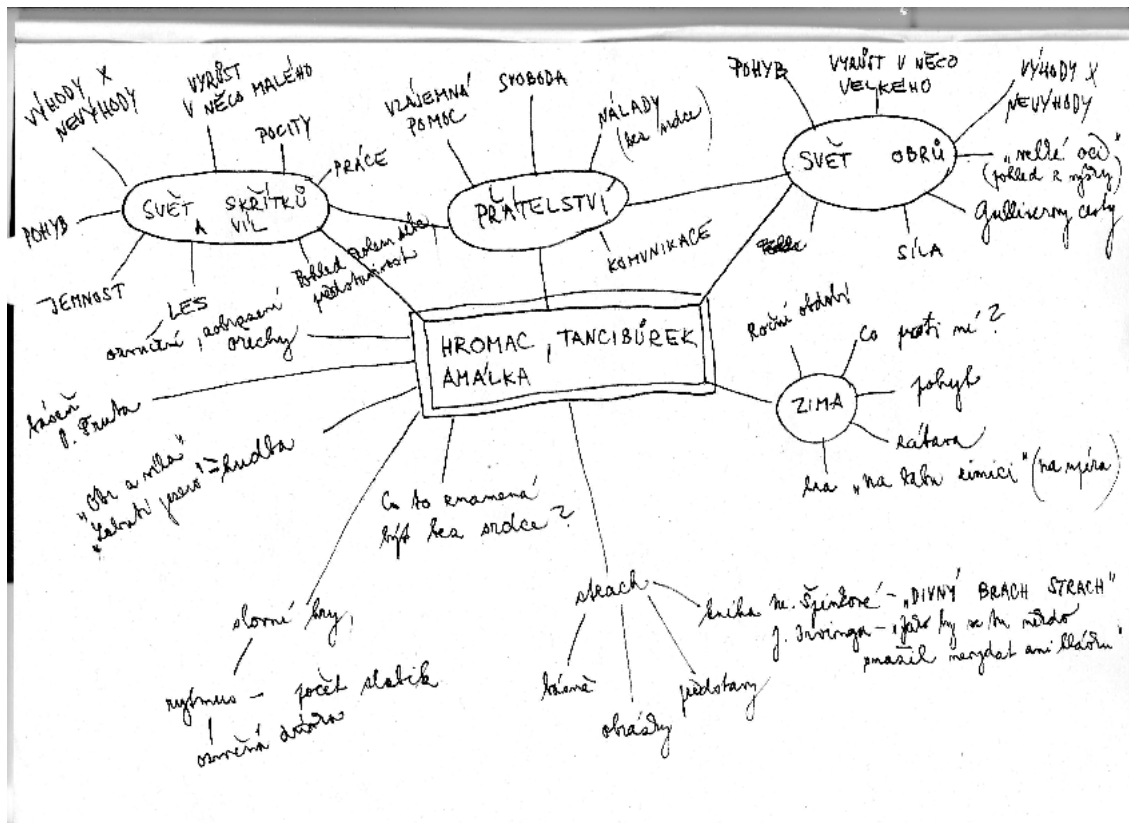 VÝHODY X
NEVÝHODY
VYRŮST
V NĚCO MALÉHO
POCITY
PRÁCE
POHYB
SVĚT SKŘÍTKŮ
A VÍL
JEMNOST
LES
ozvučení, zobrazení
ořechy
Pohled kolem sebe,
představivost
VZÁJEMNÁ
POMOC
SVOBODA
NÁLADY
(bez srdce)
PŘÁTELSTVÍ
KOMUNIKACE
POHYB
VYRŮST V NĚCO
VELKÉHO
VÝHODY X
NEVÝHODY
SVĚT OBRŮ
"velké oči"
(pohled z výšky)
Gulliverovy cesty
SÍLA
HROMAC, TANCIBŮREK
AMÁLKA
Roční období
Co patří mé?
ZIMA
pohyb
hra "na babu zimici" (na upíra)
báseň
J.
"Obr a víla"
"Labutí jezero" - hudba
Co to znamená
být bez srdce?
slovní hry,
rytmus - počet slabik
strach
básně
obrázky
představy
kniha Špinkové - "DIVNÝ BRACH STRACH"
J. Irvinga - "Jako by se tu někdo
snažil nevydat ani hlásku"